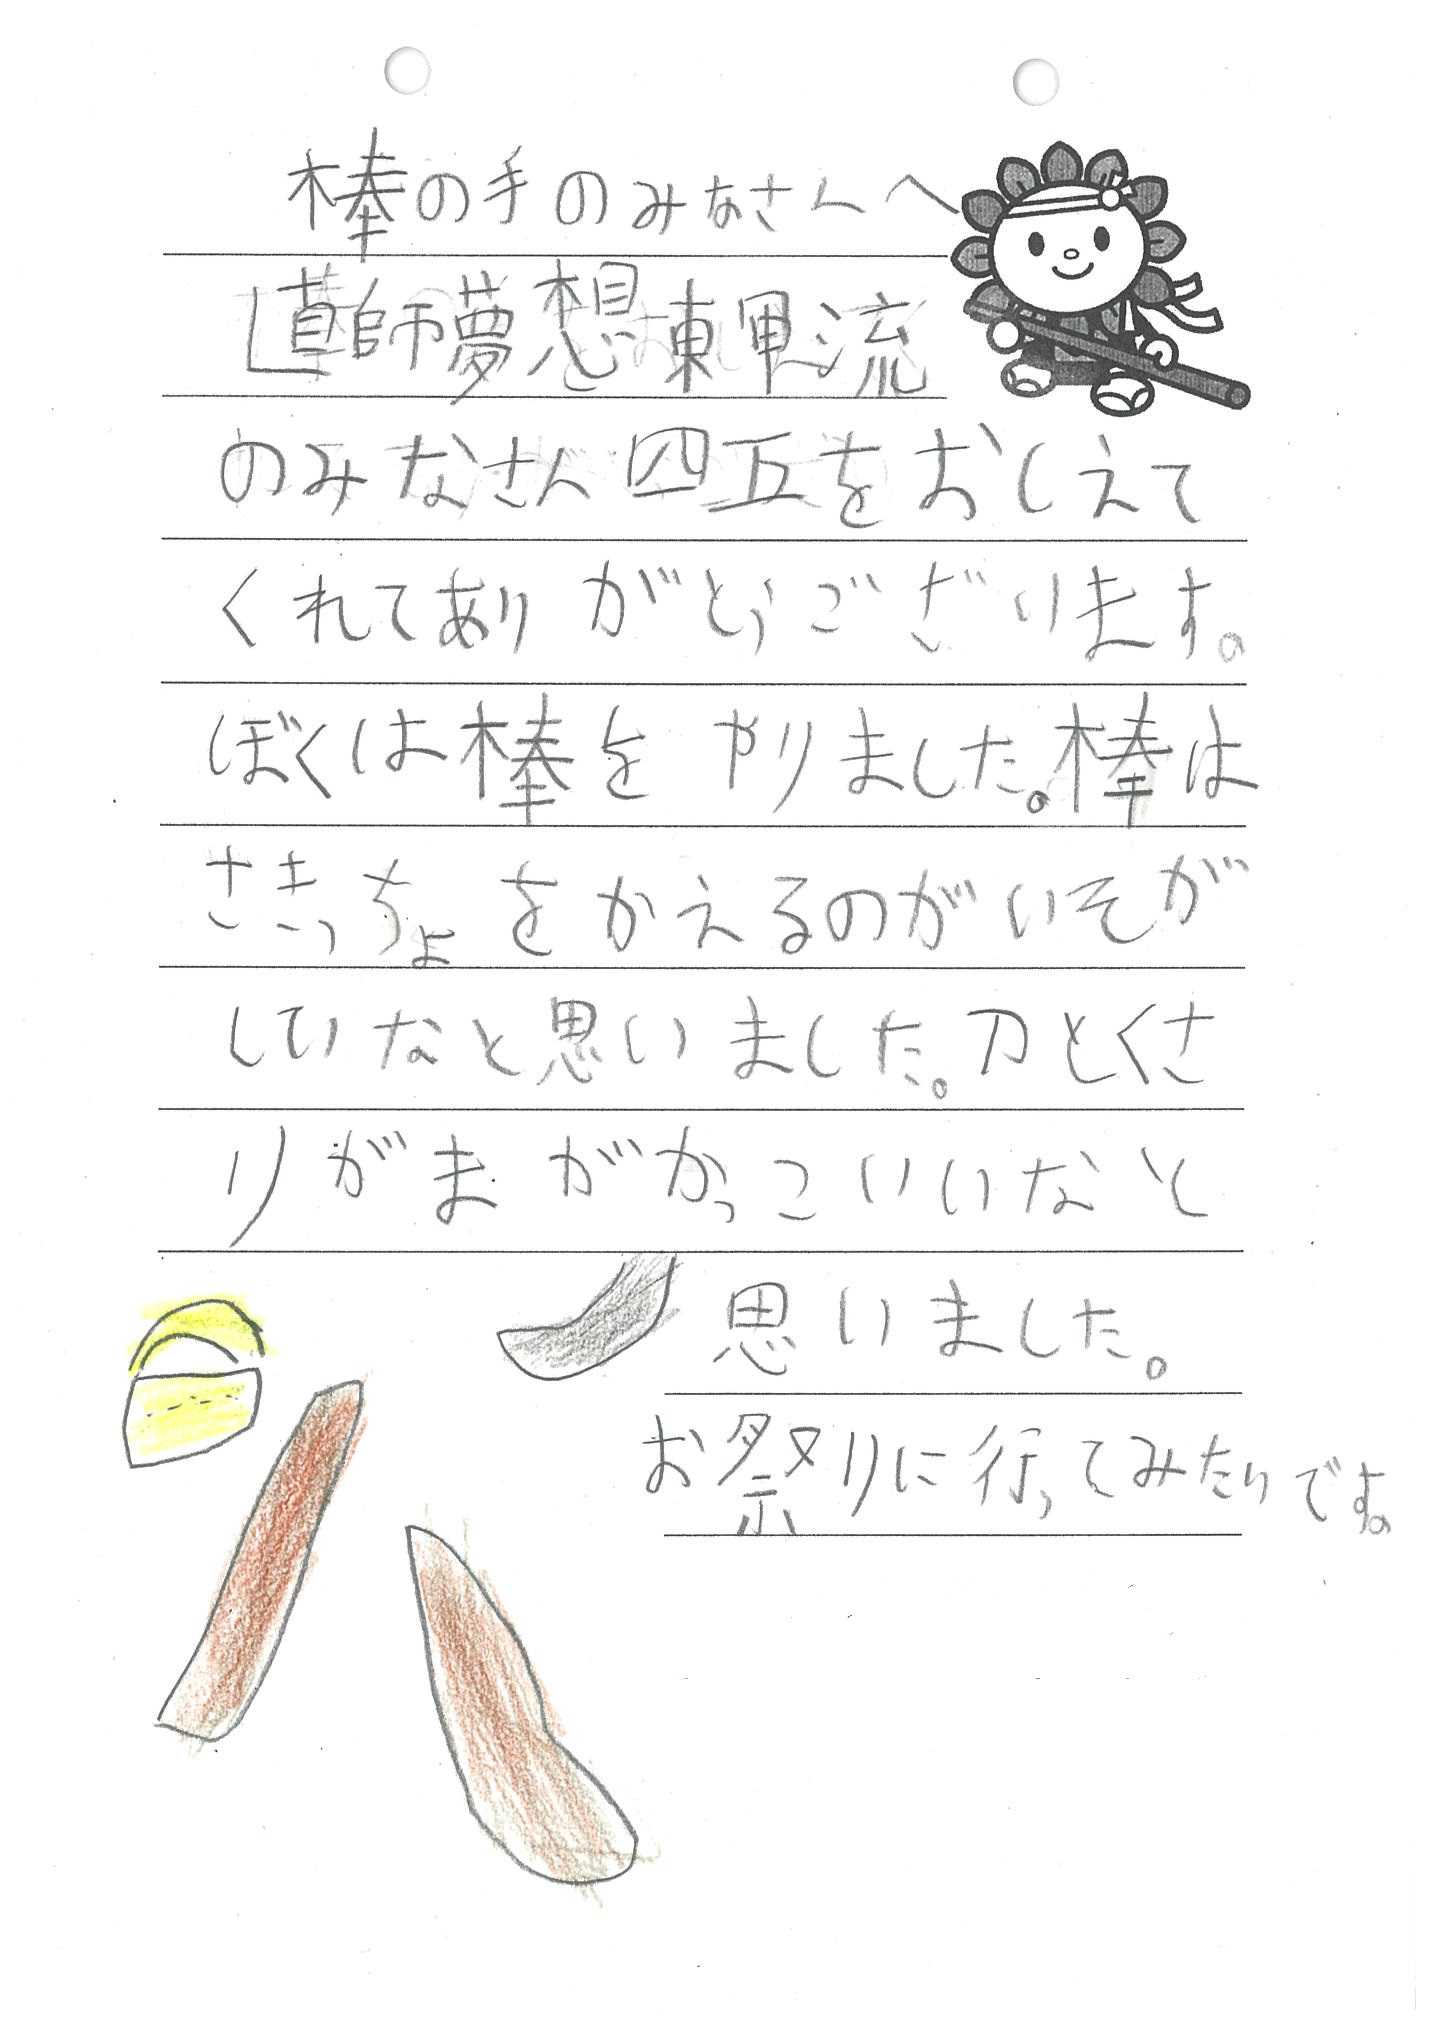 棒の手のみなさんへ
導師夢想東軍流
のみなさん四五をおしえて
くれてありがとうございます。
ぼくは棒をやりました。棒は
さきっちょをかえるのがいそが
しいなと思いました。刀とくさ
りがまがかっこいいなと
思いました。
お祭りに行ってみたいです。